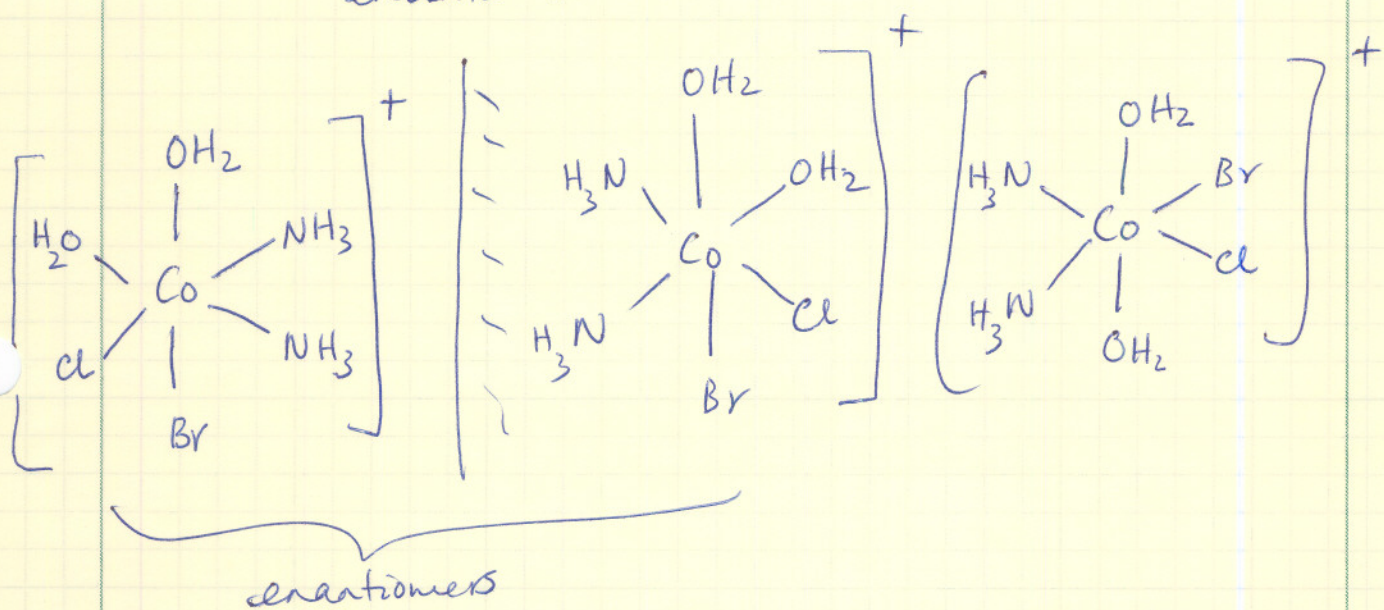 +
OH2
H2O
NH3
Co
Cl
NH3
Br
+
OH2
H3N
OH2
Co
H3N
Cl
Br
+
OH2
H3N
Br
Co
Cl
H3N
OH2
enantiomers